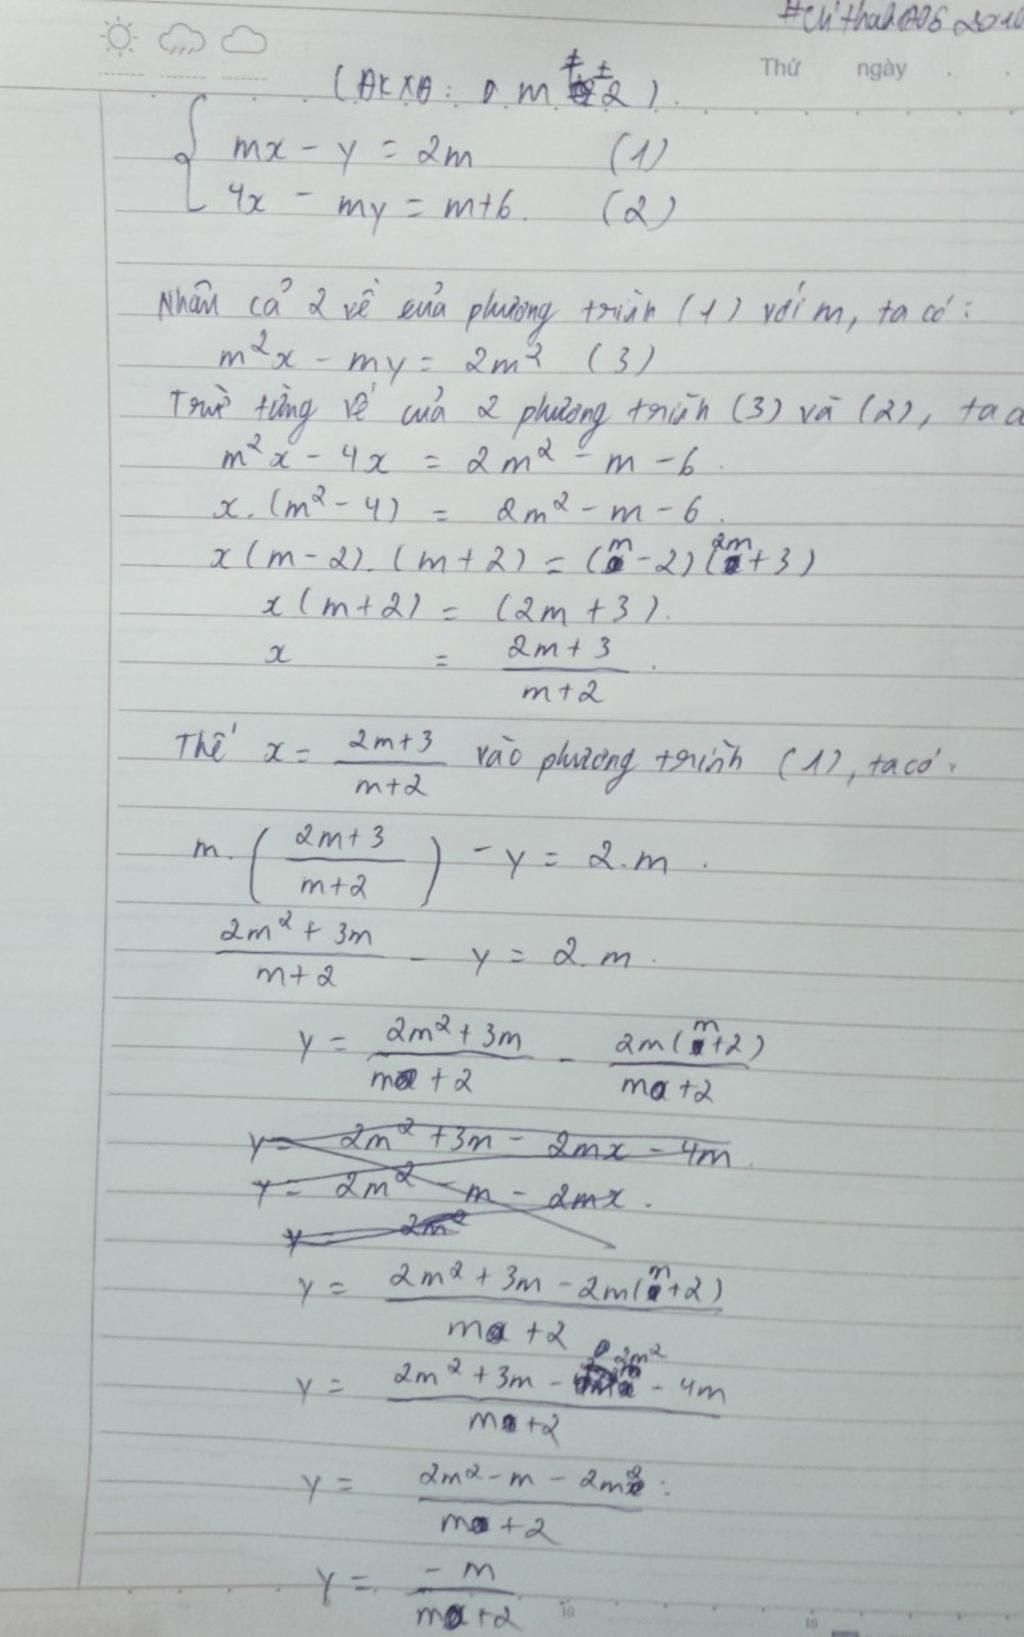 Thứ ngày
(ĐKXĐ: m ≠ ±2).
{ mx - y = 2m (1)
4x - my = m+6. (2)
Nhân cả 2 vế của phương trình (1) với m, ta có:
m²x - my = 2m² (3)
Trừ từng vế của 2 phương trình (3) và (2), ta
m²x - 4x = 2m² - m - 6.
x.(m² - 4) = 2m² - m - 6.
x(m - 2).(m + 2) = (m - 2)(2m + 3)
x(m + 2) = (2m + 3).
x = \frac{2m + 3}{m + 2}.
Thế x = \frac{2m+3}{m+2} vào phương trình (1), ta có:
m.(\frac{2m+3}{m+2}) - y = 2.m.
\frac{2m² + 3m}{m+2} - y = 2.m.
y = \frac{2m² + 3m}{m+2} - \frac{2m(m+2)}{m+2}
y = 2m² + 3m - 2mx - 4m.
y = 2m² - m - 2mx.
y 2m²
y = \frac{2m² + 3m - 2m(m+2)}{m+2}
y = \frac{2m² + 3m - 2m² - 4m}{m+2}
y = \frac{2m² - m - 2m²}{m+2}
y = \frac{-m}{m+2}
10
15